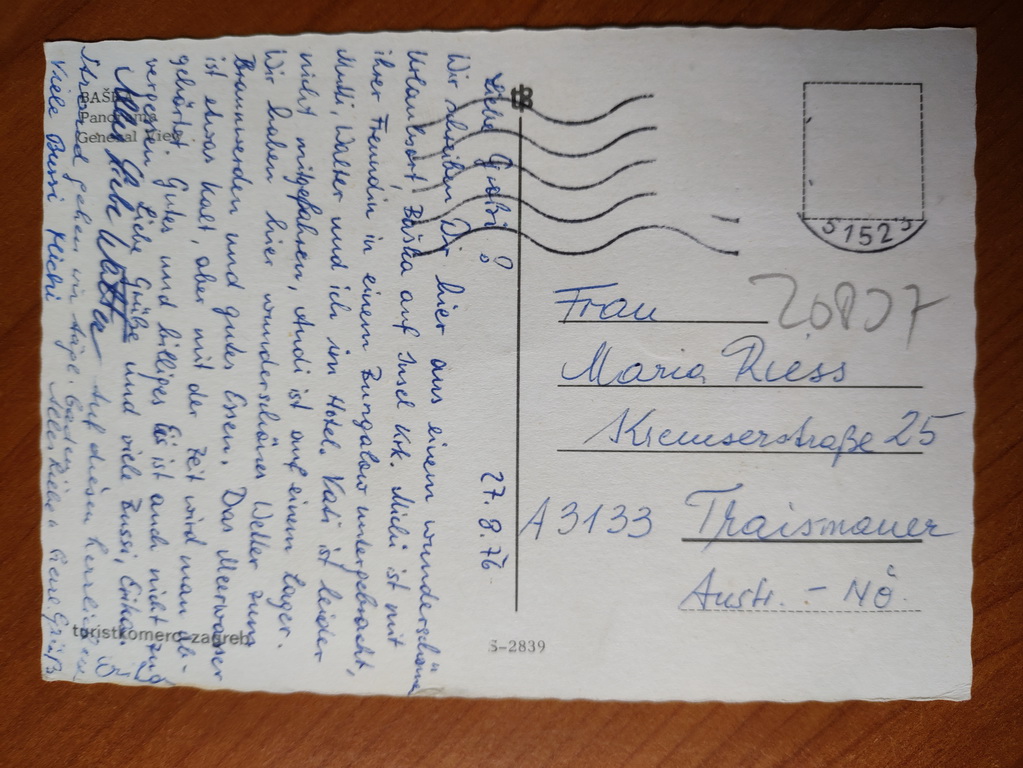 BAŠKA
Panorama
General View
27. 8. 76
Liebe Großi!
Wir schreiben Dir hier aus einem wunderschönen
Urlaubsort, Baška auf Insel Krk. Michi ist mit
ihrer Freundin in einem Bungalow untergebracht,
Mutti, Walter und ich im Hotel. Kati ist leider
nicht mitgefahren, Andi ist auf einem Lager.
Wir haben hier wunderschönes Wetter zum
Braunwerden und gutes Essen. Das Meerwasser
ist etwas kalt, aber mit der Zeit wird man ab-
gehärtet. Gutes und billiges Eis ist auch nicht zu
vergessen. Liebe Grüße und viele Bussi, Erika.
Alles Liebe Walter
Auf diesen herrlichen
Strand gehen wir tägl. baden. Alles Liebe u. herzl. Grüße
Viele Bussi Michi
turistkomerc-zagreb
S-2839
5152
Frau 20837
Maria Riess
Kremserstraße 25
A 3133 Traismauer
Austr. - NÖ